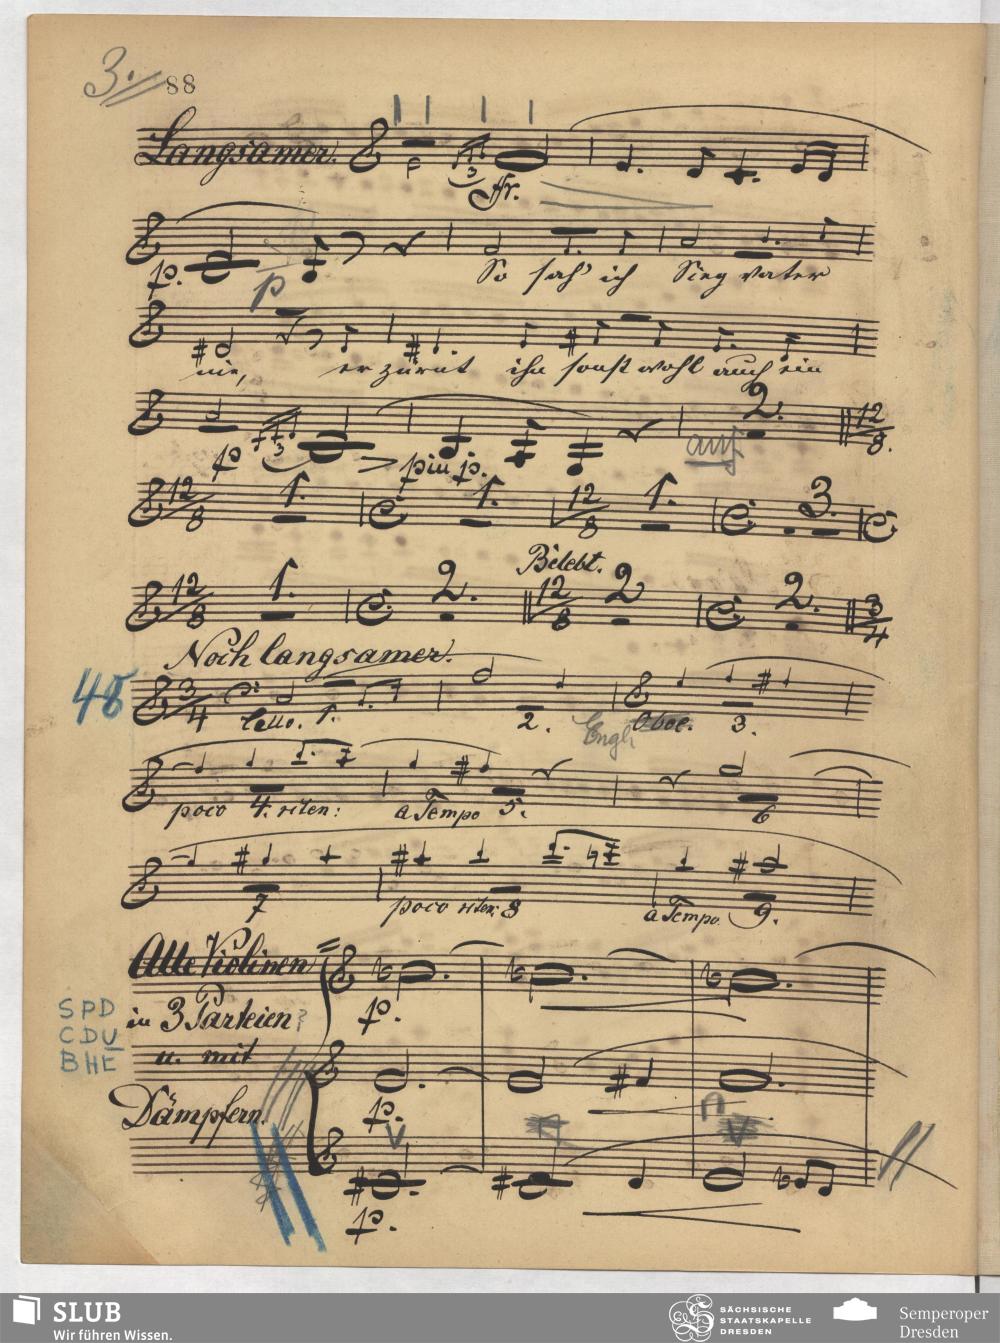 3. 88
Langsamer.
3
fr.
p.
p
So sah' ich Siegvater
nie, erzürnt ihn sonst wohl auch ein
2. 12/8.
p 3 più p. auf
12/8 1. 1. 12/8 1. 3.
Belebt.
12/8 1. 2. 12/8 2 2. 3/4
Noch langsamer.
3/4
Cello. 1. 2. Engl Oboe. 3.
poco 4. riten: a Tempo 5. 6
7 poco riten: 8 a Tempo. 9.
Alle Violinen
SPD in 3 Parteien? p.
CDU
BHE u. mit
Dämpfern. p.
p.
SLUB
Wir führen Wissen.
SÄCHSISCHE
STAATSKAPELLE
DRESDEN
Semperoper
Dresden